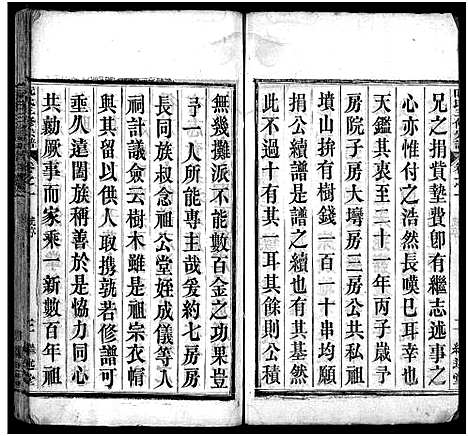 兄之捐貲墊費卽有繼志述事之
心亦無可惟付之長嘆巳耳幸也
天鑑其衷至二十一年丙子歲予
房院子房大塆房三房公共私祖
墳山拚有樹錢一百一十串均願
捐公續譜續譜是誠美舉然
此大過十　耳其餘則公積
無幾攤派不能數百金之功果豈
予一人所能專主哉爰約七房房
長同族叔念祖公堂姪成錦等在
祠計議僉云樹木雖是祖宗衣帽
與其留以供人取攜孰若修譜可
垂久遠闔族稱善於是恊力同心
共勷厥事而家乘一新數百年祖